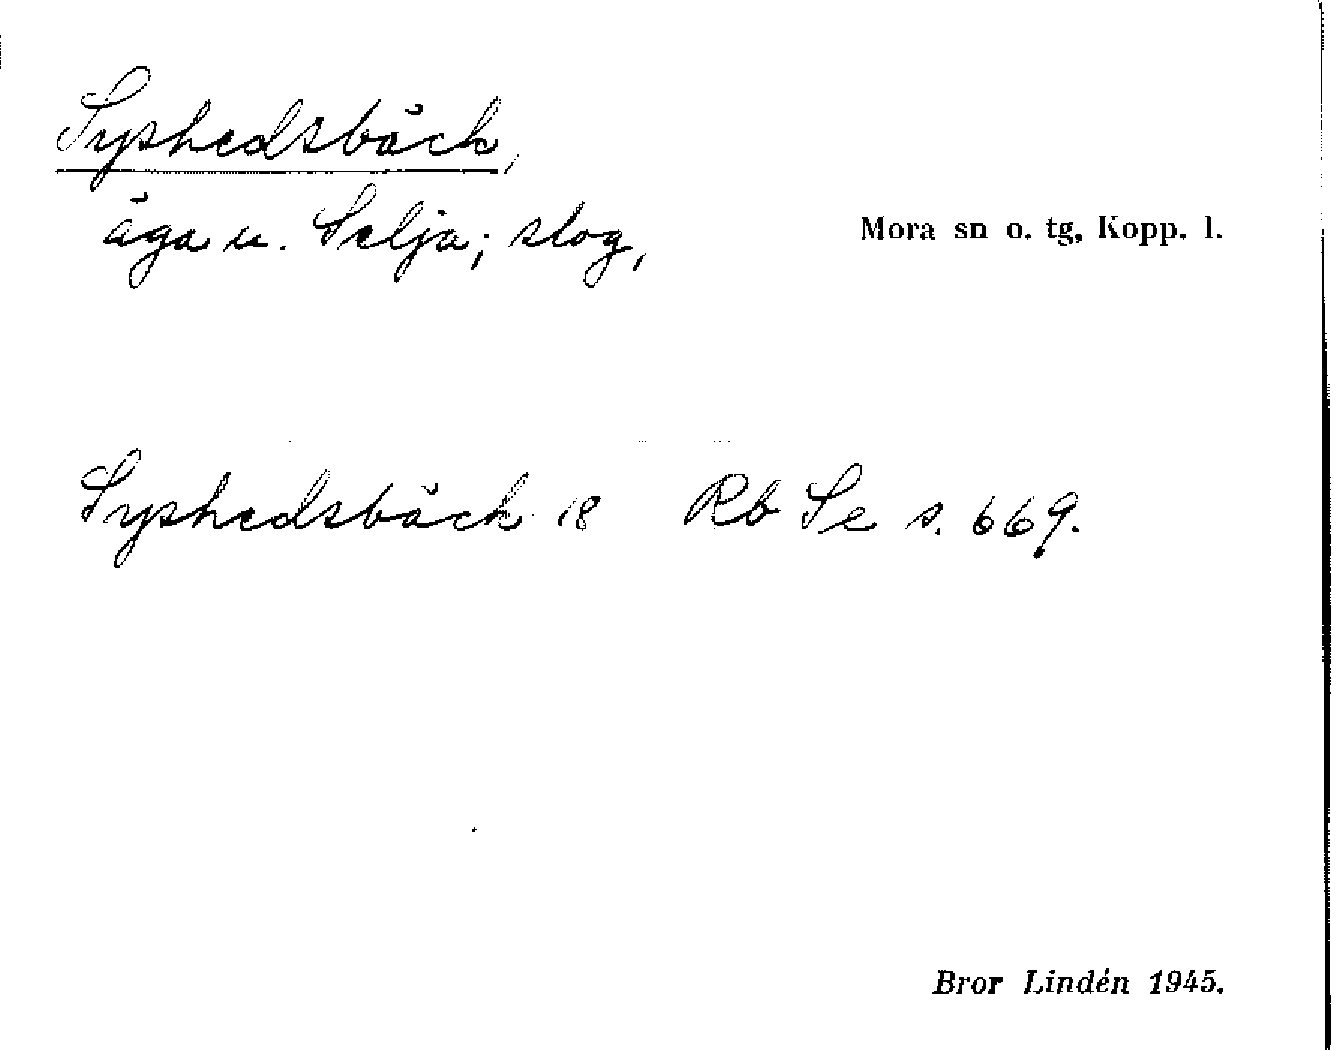 Syshedsbäck,
äga u. Selja; slog,
Mora sn o. tg, Kopp. l.
Syshedsbäck 18 Rb Se s. 669.
Bror Lindén 1945.